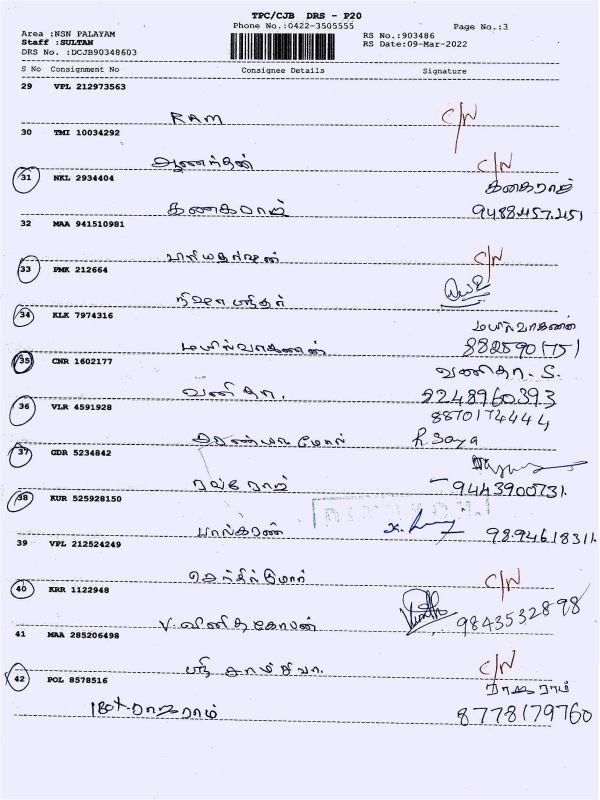 TPC/CJB DRS - P20
Phone No.:0422-3505555 Page No.:3
Area :NSN PALAYAM RS No.:903486
Staff :SULTAN RS Date:09-Mar-2022
DRS No. :DCJB90348603
S No Consignment No Consignee Details Signature
29 VPL 212973563
RAM C/N
30 TMI 10034292
ஆனந்தன் C/N
31 NKL 2934404 கனகராஜ்
கனகராஜ் 9488457451
32 MAA 941510981
C/N
33 PMK 212664
34 KLK 7974316 மயில்வாகனன்
மயில்வாகனன் 8825901751
35 CNR 1602177 வனிதா. S.
வனிதா. 2248960393
36 VLR 4591928 8870174444
37 GDR 5234842
9443900731.
38 KUR 525928150
9894618311
39 VPL 212524249
C/N
40 KRR 1122948
V. வினித கோபன் 9843532898
41 MAA 285206498
ஸ்ரீ காமாட்சியா. C/N
42 POL 8578516 ராகராம்
1Box ராகராம் 8778179760